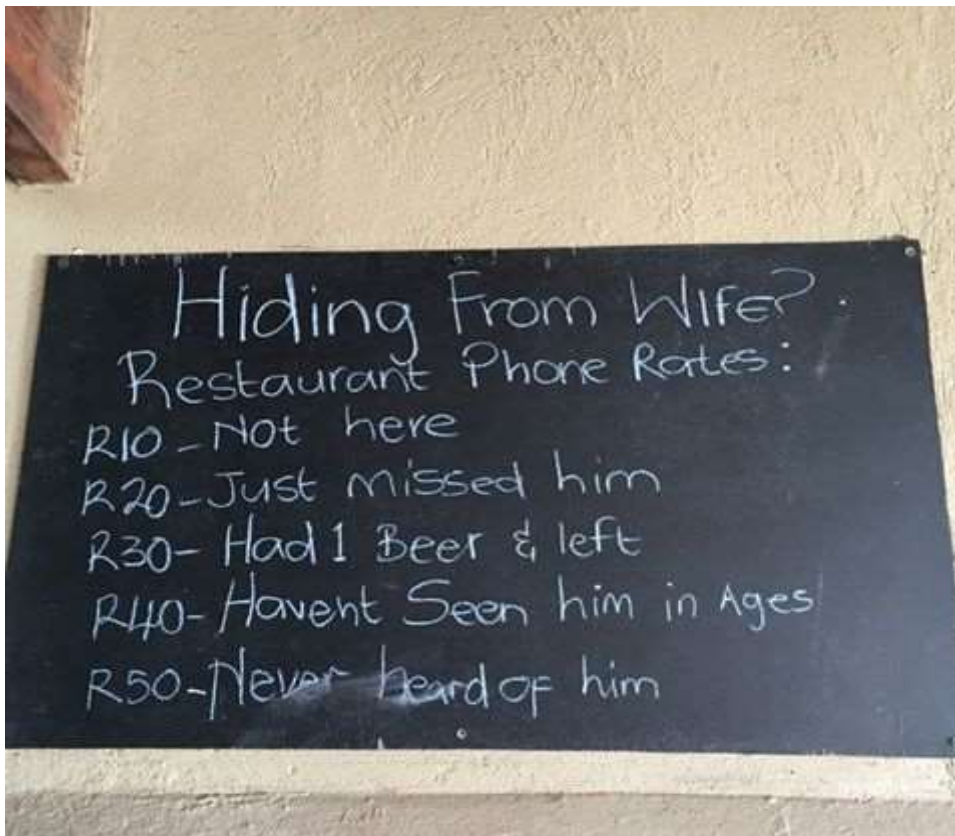 Hiding From WIFE?
Restaurant Phone Rates:
R10 - Not here
R20 - Just missed him
R30 - Had 1 Beer & left
R40 - Havent Seen him in Ages
R50 - Never heard of him